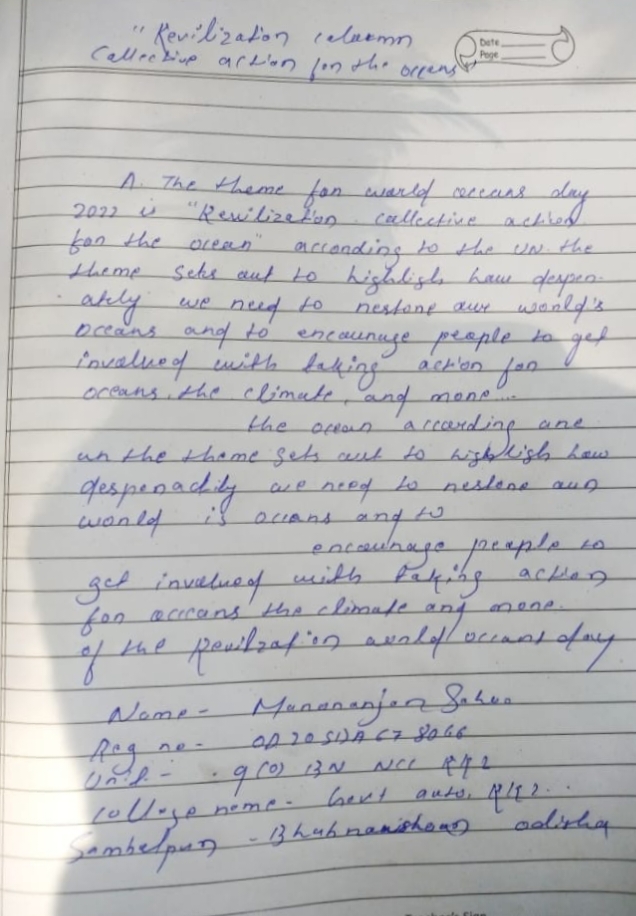 "Revilization column
Collective action for the oceans
Date
Page
A. The theme for world oceans day
2022 is "Revilization collective action
for the ocean" according to the UN. the
theme sets out to highligh how desper-
ately we need to restore our world's
oceans and to encourage people to get
involved with taking action for
oceans, the climate, and more....
the ocean according are
un the theme sets out to highligh how
desperadily we need to restore our
world is oceans and to
encourage people to
get involved with taking action
for occans the climate and more.
of the Revilzation world occans day
Name - Manaranjan Sahoo
Reg no - OD20SDA678066
Unit - 9(O) BN NCC
college name - Govt auto.
Sambalpur - Bhubnanishwar odisha